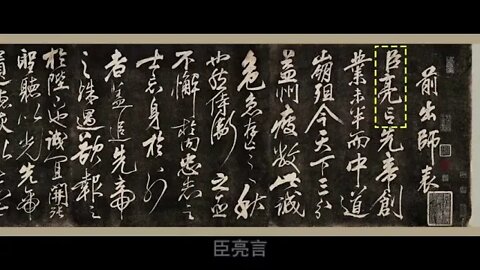 前出師表
臣亮言先帝創
業未半而中道
崩殂今天下三分
益州疲敝此誠
危急存亡之秋
也然侍衛之臣
不懈於內忠志之
士忘身於外
者蓋追先帝
之殊遇欲報之
於陛下也誠宜開張
聖聽以光先帝
臣亮言